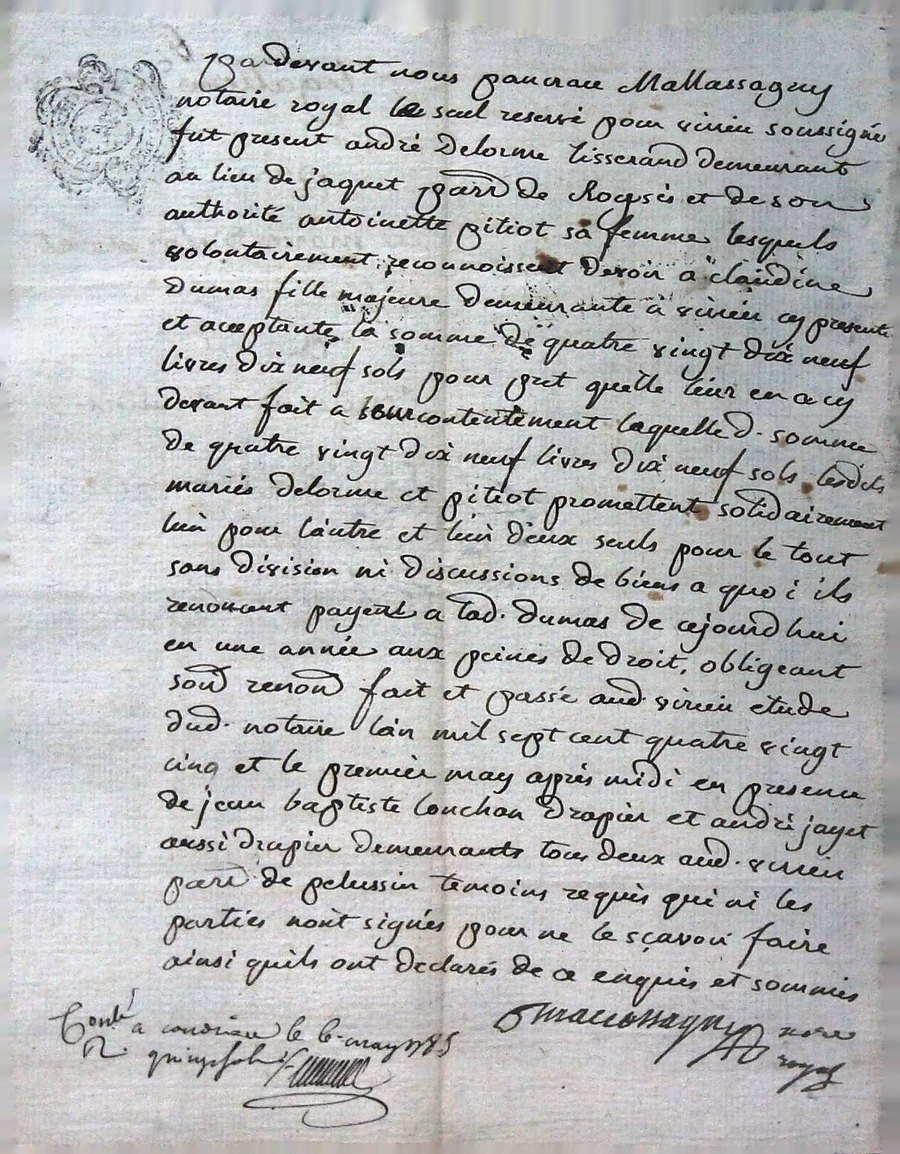 pardevant nous pancrace Mallassagny
notaire royal le seul reservé pour virieu soussigné
fut present andré Delorme tisserand demeurant
au lieu de jaquet parr de Roysés et de son
authorité antoinette pitiot sa femme lesquels
volontairement reconnoissent devoir a claudine
Dumas fille majeure demeurante a virieu cy presente
et acceptante la somme de quatre vingt dix neuf
livres dix neuf sols pour pret quelle leur en a cy
devant fait a leur contentement laquelle d. somme
de quatre vingt dix neuf livres dix neuf sols lesdits
mariés delorme et pitiot promettent solidairement
lun pour lautre et lun deux seuls pour le tout
sans division ni discussions de biens a quoi ils
renoncent payer a lad. dumas de cejourdhui
en une année aux peines de droit, obligeant
soud renond fait et passé aud virieu etude
dud. notaire lan mil sept cent quatre vingt
cinq et le premier may apres midi en presence
de jean baptiste Couchon drapier et andré jayet
aussi drapier demeurants tous deux aud. virieu
parr de pelussin temoins requis qui ni les
parties nont signés pour ne le sçavoir faire
ainsi quils ont declarés de ce enquis et sommés
Mallassagny nore
royal
Conlé a condrieu le 6 may 1785
R quinze sols